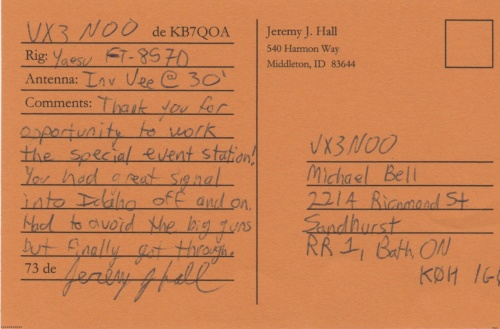 VX3NOO de KB7QOA
Rig: Yaesu FT-857D
Antenna: Inv Vee @ 30'
Comments: Thank you for
opportunity to work
the special event station!
You had great signal
into Idaho off and on.
Had to avoid the big guns
but finally got through.
73 de
Jeremy J Hall
Jeremy J. Hall
540 Harmon Way
Middleton, ID 83644
VX3NOO
Michael Bell
221A Richmond St
Sandhurst
RR 1, Bath ON
K0H 1G